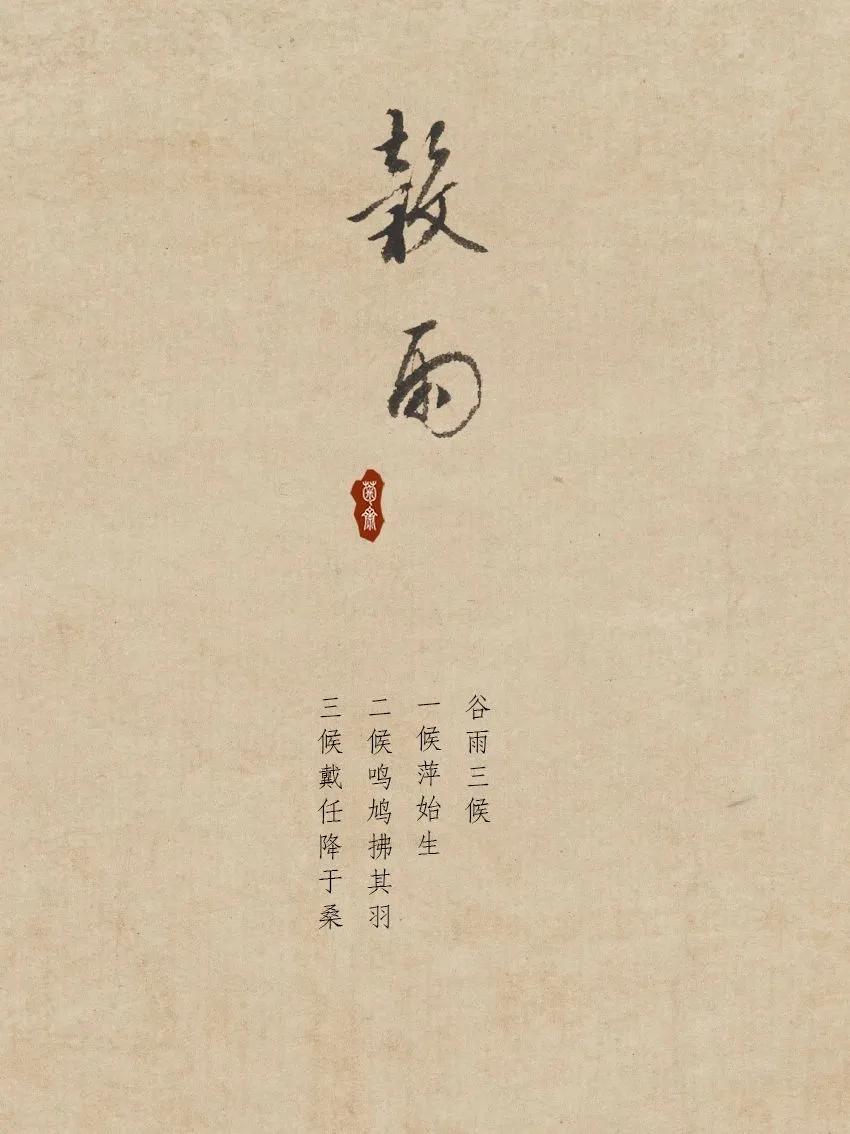 穀雨
谷雨三候
一候萍始生
二候鸣鸠拂其羽
三候戴任降于桑